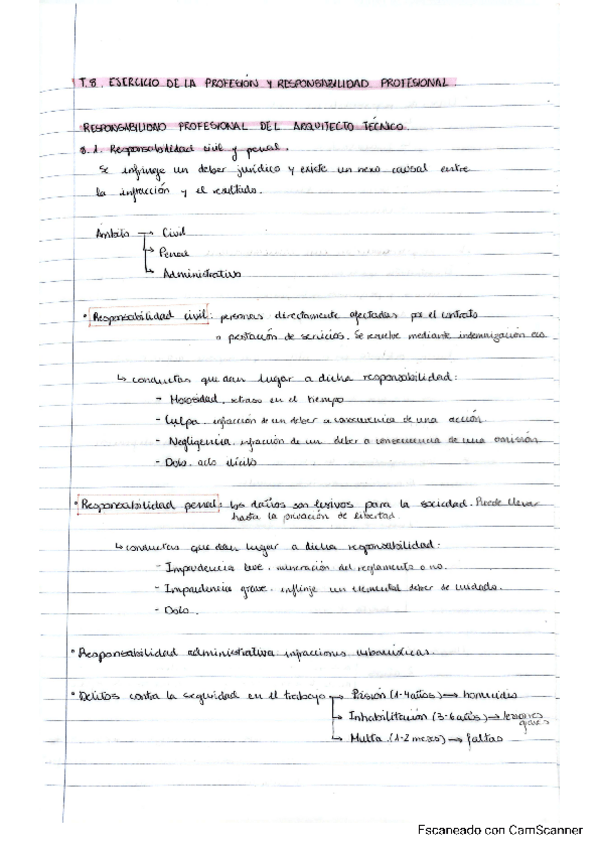 T.8. EJERCICIO DE LA PROFESIÓN Y RESPONSABILIDAD PROFESIONAL.
RESPONSABILIDAD PROFESIONAL DEL ARQUITECTO TÉCNICO.
8.1. Responsabilidad civil y penal.
Se infringe un deber jurídico y existe un nexo causal entre
la infracción y el resultado.
Ámbito → Civil
→ Penal
→ Administrativo
• Responsabilidad civil: personas directamente afectadas por el contrato
o prestación de servicios. Se resuelve mediante indemnización eco
↳ conductas que dan lugar a dicha responsabilidad:
- Morosidad, retraso en el tiempo
- Culpa. infracción de un deber a consecuencia de una acción
- Negligencia. infracción de un deber a consecuencia de una omisión
- Dolo. acto ilícito
• Responsabilidad penal: los daños son lesivos para la sociedad. Puede llevar
hasta la privación de libertad
↳ conductas que dan lugar a dicha responsabilidad:
- Imprudencia leve. vulneración del reglamento o no.
- Imprudencia grave. inflinje un elemental deber de cuidado.
- Dolo.
• Responsabilidad administrativa infracciones urbanísticas.
• Delitos contra la seguridad en el trabajo → Prisión (1-4 años) → homicidio
→ Inhabilitación (3-6 años) → lesiones graves
→ Multa (1-2 meses) → faltas
Escaneado con CamScanner